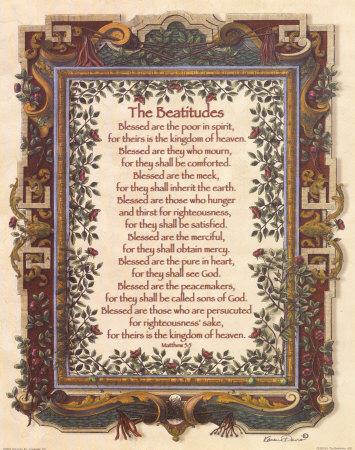 The Beatitudes
Blessed are the poor in spirit,
for theirs is the kingdom of heaven.
Blessed are they who mourn,
for they shall be comforted.
Blessed are the meek,
for they shall inherit the earth.
Blessed are those who hunger
and thirst for righteousness,
for they shall be satisfied.
Blessed are the merciful,
for they shall obtain mercy.
Blessed are the pure in heart,
for they shall see God.
Blessed are the peacemakers,
for they shall be called sons of God.
Blessed are those who are persucuted
for righteousness' sake,
for theirs is the kingdom of heaven.